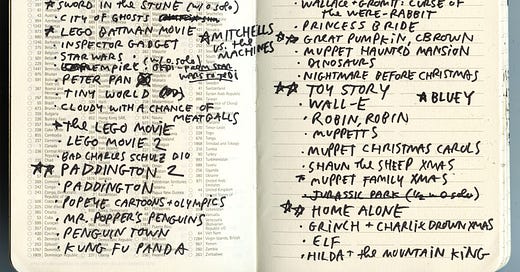 ☆ SWORD IN THE STONE (w/o solo)
• CITY OF GHOSTS
☆ LEGO BATMAN MOVIE
☆ MITCHELLS
vs. the
MACHINES
• INSPECTOR GADGET
• STAR WARS (w/o solo)
EMPIRE, JEDI
• PETER PAN
• TINY WORLD
• CLOUDY WITH A CHANCE OF
MEATBALLS
☆ the LEGO MOVIE
• LEGO MOVIE 2
• BAD CHARLES SCHULZ DIO
☆☆ PADDINGTON 2
• PADDINGTON
• POPEYE CARTOONS + OLYMPICS
• MR. POPPER'S PENGUINS
• PENGUIN TOWN
• KUNG FU PANDA
WALLACE + GROMIT: CURSE OF
the WERE-RABBIT
• PRINCESS BRIDE
☆☆ GREAT PUMPKIN, CBROWN
• MUPPET HAUNTED MANSION
• DINOSAURS
• NIGHTMARE BEFORE CHRISTMAS
☆☆ TOY STORY
• WALL-E
☆ BLUEY
• ROBIN, ROBIN
• MUPPETTS
• MUPPET CHRISTMAS CAROLS
• SHAUN the SHEEP XMAS
* MUPPET FAMILY XMAS
• JURASSIC PARK
☆☆ HOME ALONE
• GRINCH + CHARLIE BROWN XMAS
• ELF
• HILDA + the MOUNTAIN KING